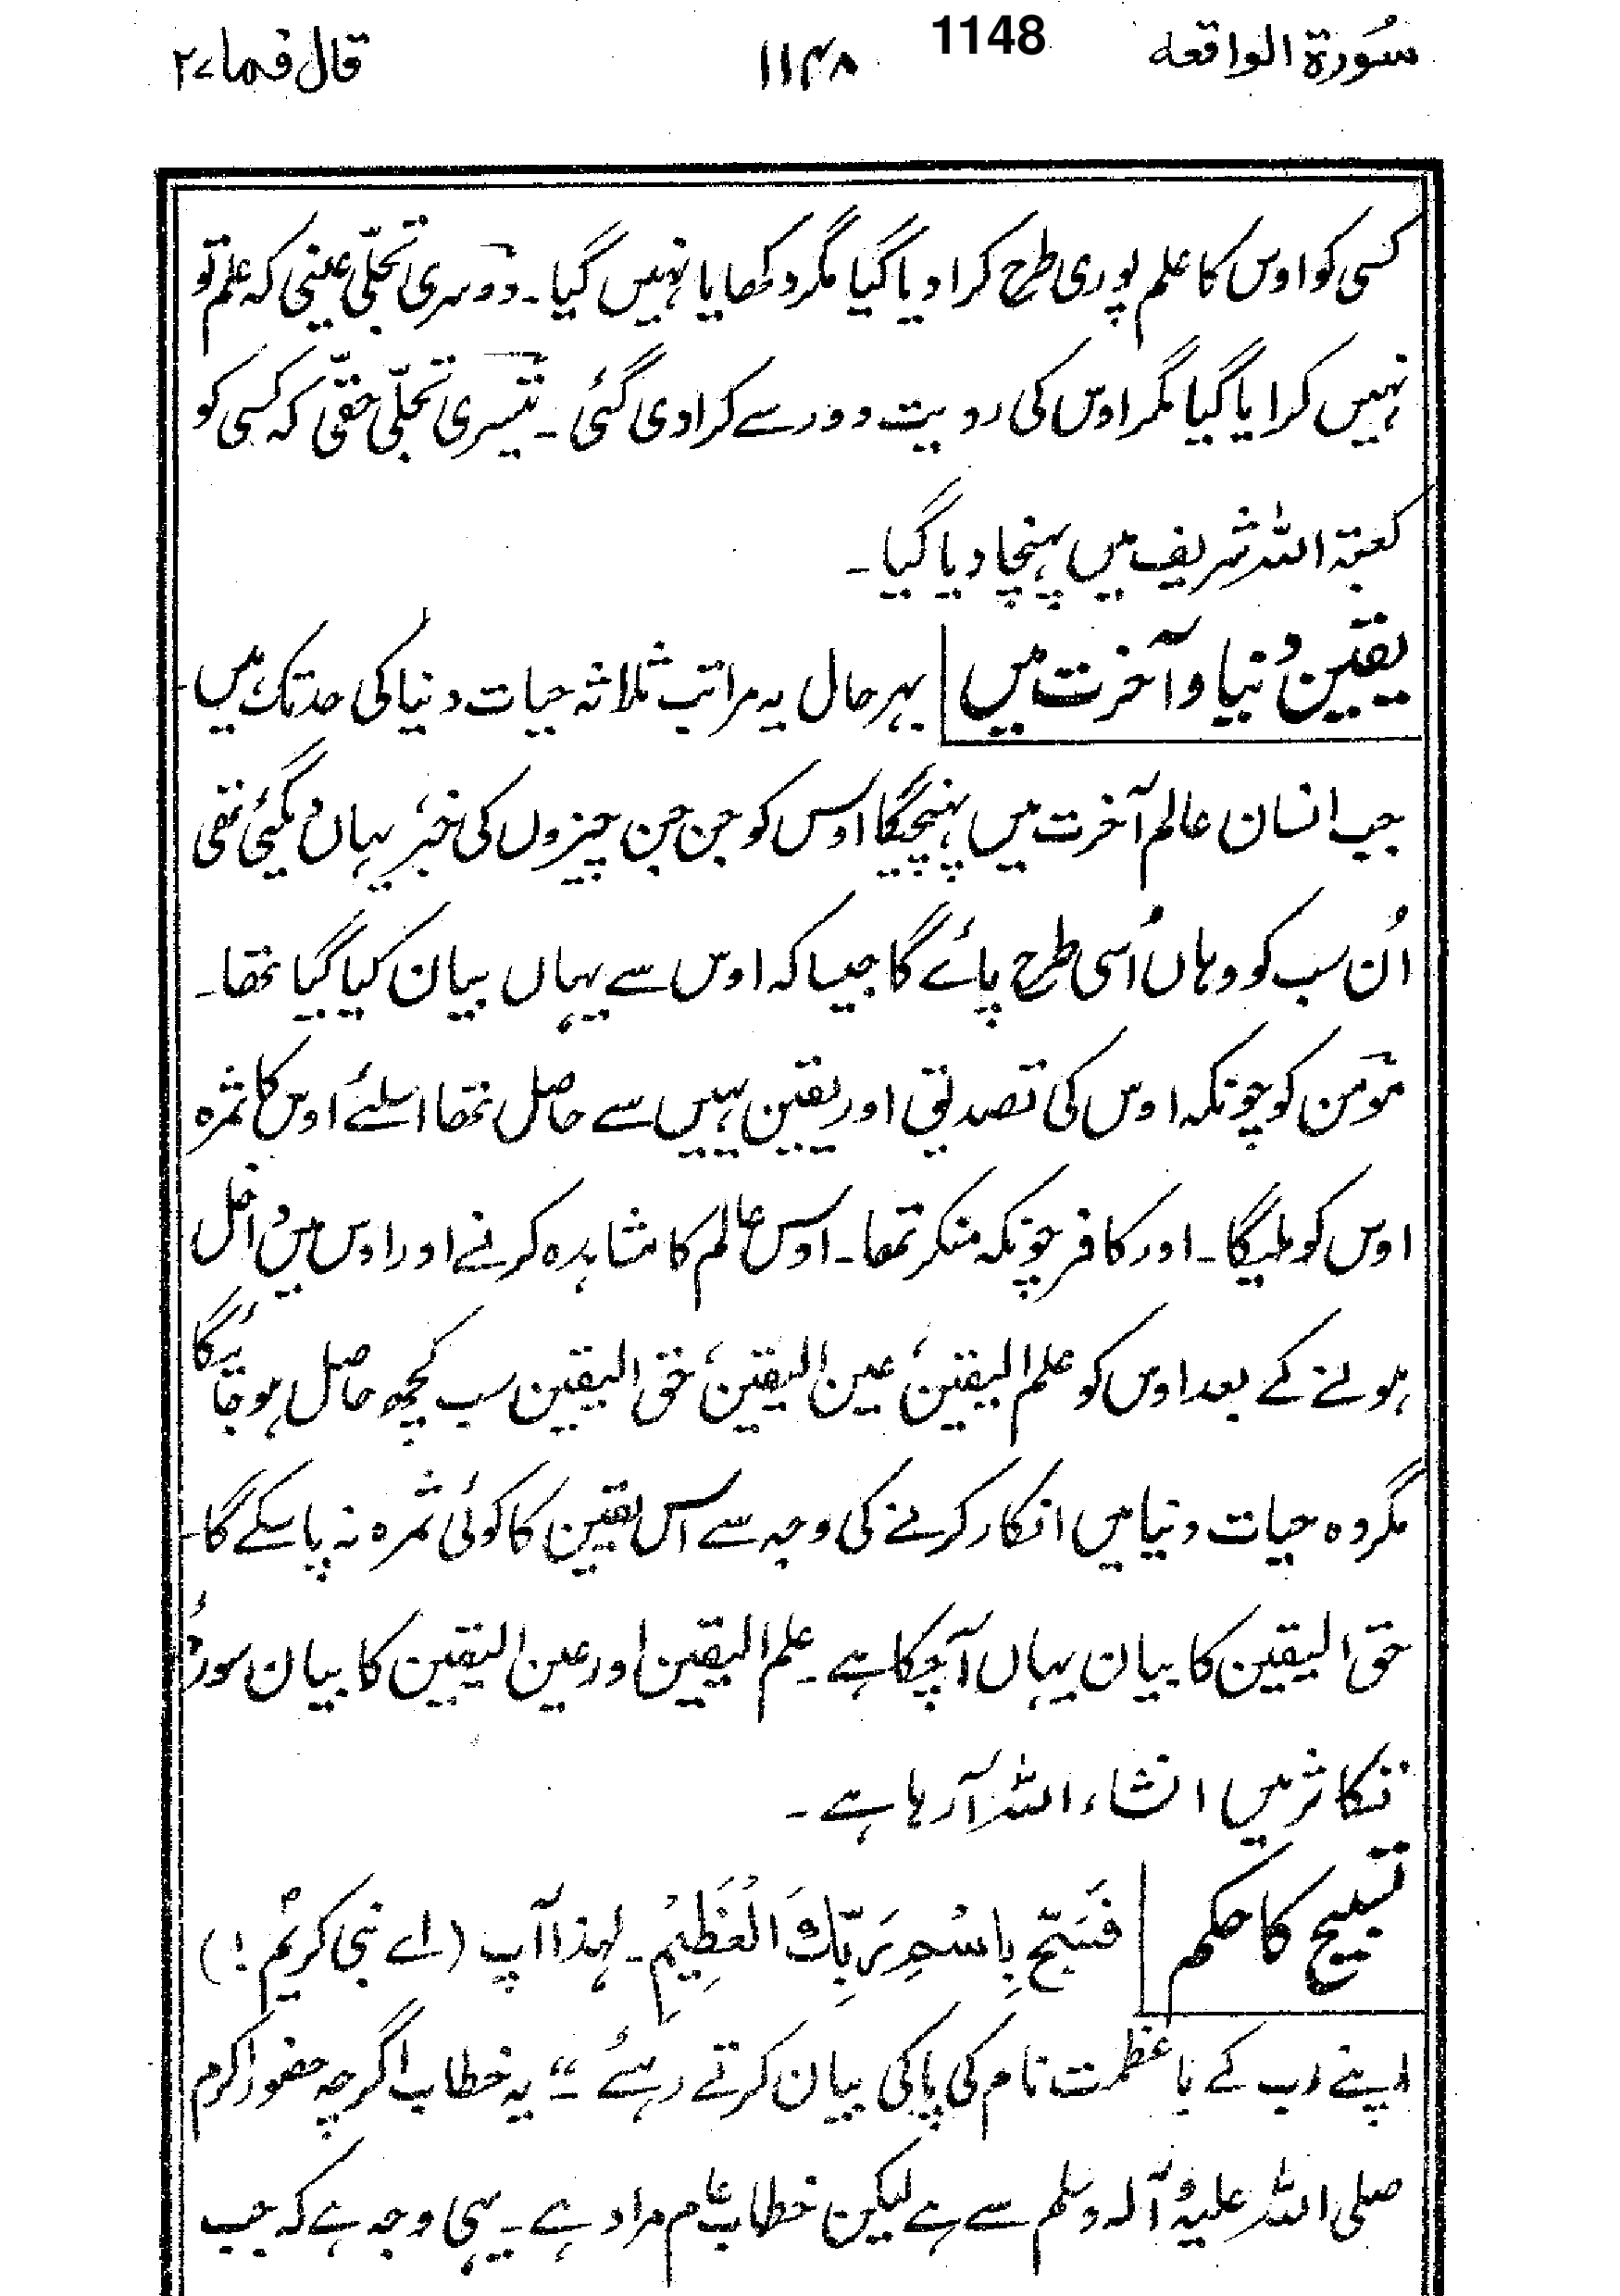 سُورۃ الواقعہ 1148 ۱۱۴۸ قال فما ۲۷
کسی کو اوس کا علم پوری طرح کرا دیا گیا مگر دکھایا نہیں گیا۔ دوسری تجلّی عینی کہ علم تو
نہیں کرایا گیا مگر اوس کی رویت دور سے کرا دی گئی۔ تیسری تجلّی حقّی کہ کسی کو
کعبۃ اللہ شریف میں پہنچا دیا گیا۔
یقین دُنیا و آخرت میں بہر حال یہ مراتب ثلاثہ حیات دنیا کی حد تک ہیں۔
جب انسان عالم آخرت میں پہنچیگا اوس کو جن جن چیزوں کی خبر یہاں دیگئی تھی
اُن سب کو وہاں اُسی طرح پائے گا جیسا کہ اوس سے یہاں بیان کیا گیا تھا۔
مؤمن کو چونکہ اوس کی تصدیق اور یقین یہیں سے حاصل تھا اسلئے اوس کا ثمرہ
اوس کو ملیگا۔ اور کافر چونکہ منکر تھا۔ اوس عالم کا مشاہدہ کرنے اور اوس میں داخل
ہونے کے بعد اوس کو علم الیقین، عین الیقین، حق الیقین سب کچھ حاصل ہو جائیگا
مگر وہ حیات دنیا میں انکار کرنے کی وجہ سے اس یقین کا کوئی ثمرہ نہ پا سکے گا۔
حق الیقین کا بیان یہاں آچکا ہے۔ علم الیقین اور عین الیقین کا بیان سورۂ
تکاثر میں انشاء اللہ آرہا ہے۔
تسبیح کا حکم فَسَبِّحْ بِاسْمِ رَبِّكَ الْعَظِيْمِ۔ لہذا آپ (اے نبی کریمؐ !)
اپنے رب کے با عظمت نام کی پاکی بیان کرتے رہئے ۔“ یہ خطاب اگرچہ حضور اکرم
صلی اللہ علیہ وآلہ وسلم سے ہے لیکن خطاب عام مراد ہے۔ یہی وجہ ہے کہ جب